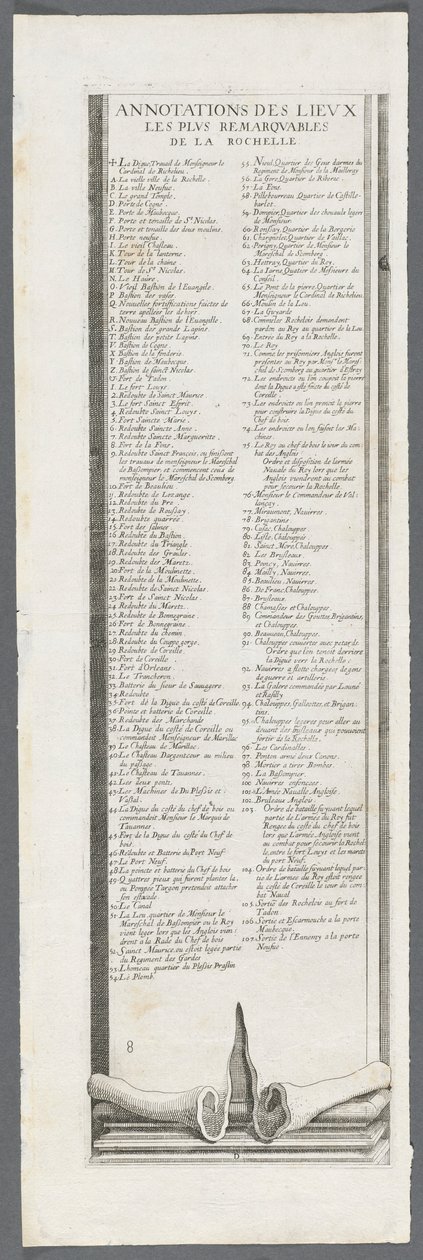 ANNOTATIONS DES LIEVX
LES PLVS REMARQVABLES
DE LA ROCHELLE
✢ La Digue, Travail de Monseigneur le
Cardinal de Richelieu.
A. La vielle ville de la Rochelle.
B. La ville Neufue.
C. Le grand Temple.
D. Porte de Cogne.
E. Porte de Maubecque.
F. Porte et tenaille de St Nicolas.
G. Porte et tenaille des deux moulins.
H. Porte neufue.
I. Le vieil Chasteau.
K. Tour de la lanterne.
L. Tour de la chaine.
M. Tour de St Nicolas.
N. Le Haure.
O. Vieil Bastion de l'Euangile.
P. Bastion des vases.
Q. Nouvelles fortifications faictes de
terre apellees le dehors.
R. Nouveau Bastion de l'Euangille.
S. Bastion des grands Lapins.
T. Bastion des petits Lapins.
V. Bastion de Cogne.
X. Bastion de la fonderie.
Y. Bastion de Maubecque.
Z. Bastion de sainct Nicolas.
Fort de Tadon.
1. Le fort Louys.
2. Redoubte de Sainct Maurice.
3. Le fort Sainct Esprit.
4. Redoubte Sainct Louys.
5. Fort Saincte Marie.
6. Redoubte Saincte Anne.
7. Redoubte Saincte Margueritte.
8. Fort de la Fons.
9. Redoubte Sainct François, ou finissent
les travaux de monseigneur le Mareschal
de Bassompier, et commencent ceux de
monseigneur le Mareschal de Scomberg.
10. Fort de Beaulieu.
11. Redoubte de Lozange.
12. Redoubte du Pré.
13. Redoubte de Ronsay.
14. Redoubte quarrée.
15. Fort des salines.
16. Redoubte du Bastion.
17. Redoubte du Triangle.
18. Redoubte des Graides.
19. Redoubte des Maretz.
20. Fort de la Moulinette.
21. Redoubte de la Moulinette.
22. Redoubte de Sainct Nicolas.
23. Fort de Sainct Nicolas.
24. Redoubte du Maretz.
25. Redoubte de Bonnegraine.
26. Fort de Bonnegraine.
27. Redoubte du chemin.
28. Redoubte du Coupe gorge.
29. Redoubte de Coreille.
30. Fort de Coreille.
31. Fort d'Orleans.
32. Le Trancheron.
33. Batterie du sieur de Sauuggere.
34. Redoubte
35. Fort de la Digue du costé de Coreille.
36. Pointe et batterie de Coreille.
37. Redoubte des Marchands.
38. La Digue du costé de Coreille ou
commandoit Monseigneur de Marillac.
39. Le Chasteau de Marillac.
40. Le Chasteau Dargencour au milieu
du passage.
41. Le Chasteau de Tauannes.
42. Les deux ponts.
43. Les Machines de Du Plessis et
Vassal.
44. La Digue du costé du chef de bois ou
commandoit Monsieur le Marquis de
Tauannes.
45. Fort de la Digue du costé du Chef de
bois.
46. Redoubte et Batterie du Port Neuf.
47. Le Port Neuf.
48. La poincte et batterie du Chef de bois
49. Quattres pieux qui furent plantez la,
ou Pompée Targon pretendoit attacher
son estacade.
50. Le Canal
51. La Leu, quartier de Monsieur le
Mareschal de Bassompier ou le Roy
vient loger lors que les Anglois vien:
drent à la Rade du Chef de bois
52. Sainct Maurice, ou estoit logée partie
du Regiment des Gardes
53. Lhomeau quartier du Plessis Praslin
54. Le Plomb.
55. Nieul, Quartier des Gens darmes du
Regiment de Monsieur de la Meilleray
56. La Gore, Quartier de Riberac.
57. La Fons.
58. Pillebourreau, Quartier de Castille-
barlet.
59. Dompier, Quartier des chevaulx legers
de Monsieur
60. Ronssay, Quartier de la Bergerie
61. Chargnolet, Quartier de Vaillac.
62. Perigny, Quartier de Monsieur le
Mareschal de Scomberg.
63. Hettray, Quartier du Roy.
64. La Iarne, Quartier de Messieurs du
Conseil.
65. Le Pont de la pierre, Quartier de
Monseigneur le Cardinal de Richelieu.
66. Moulin de la Leu.
67. La Guyarde
68. Comme les Rochelois demandent
pardon au Roy au quartier de la Leu.
69. Entrée du Roy a la Rochelle.
70. Le Roy
71. Comme les prisonniers Anglois furent
presentez au Roy par Monsr le Mares-
chal de Scomberg au quartier d'Effray
72. Les endroicts ou lon couppe la pierre
dont la Digue a esté faicte du costé de
Coreille.
73. Les endroicts ou lon prenoit la pierre
pour construire la Digue du costé du
Chef de bois.
74. Les endroicts ou lon faisoit les Ma-
chines.
75. Le Roy au chef de bois le iour du com-
bat des Anglois
Ordre et disposition de larmée
Nauale du Roy lors que les
Anglois viendront au combat
pour secourir la Rochelle.
76. Monsieur le Commandeur de Val:
lançay.
77. Miraumont, Nauirres.
78. Brigantins
79. Cusac, Chalouppes
80. Lisle, Chalouppes
81. Sainct Moré, Chalouppes
82. Les Brusleaux
83. Poincy, Nauirres.
84. Mailly, Nauirres.
85. Beaulieu, Nauirres.
86. De Franc, Chalouppes.
87. Brusleaux.
88. Chamasses et Chalouppes.
89. Commandeur des Gouttes, Brigantins,
et Chalouppes.
90. Beauueau, Chalouppes.
91. Chalouppes couvertes avec petards.
Ordre que lon tenoit derriere
la Digue vers la Rochelle.
92. Nauirres a flotte chargez de gens
de guerre et artillerie.
93. La Galere commandée par Louné
et Rasilly
94. Chalouppes, Galleottes, et Brigan-
tins.
95. Chalouppes legeres pour aller au
deuant des brusleaux qui pouuoient
sortir de la Rochelle.
96. Les Cardinalles.
97. Ponton armé deux Canons.
98. Mortier a tirer Bombes.
99. La Bassompier.
100. Nauirres enfoncees
101. L'Armée Nauaille Angloise.
102. Brusleaux Anglois.
103. Ordre de bataille suyuant lequel
partie de L'armee du Roy fut
Rengée du costé du chef de bois
lors que L'armée Angloise vient
au combat pour secourir la Rochel:
le, entre le fort Louys et les maretz
du port Neuf.
104. Ordre de bataille suyuant lequel par
tie de Larmee du Roy estoit rengee
du costé de Coreille le iour du com
bat Naual
105. Sortie des Rochelois au fort de
Tadon
106. Sortie et Escarmouche a la porte
Maubecque.
107. Sortie de l'Ennemy a la porte
Neufue.
8
D